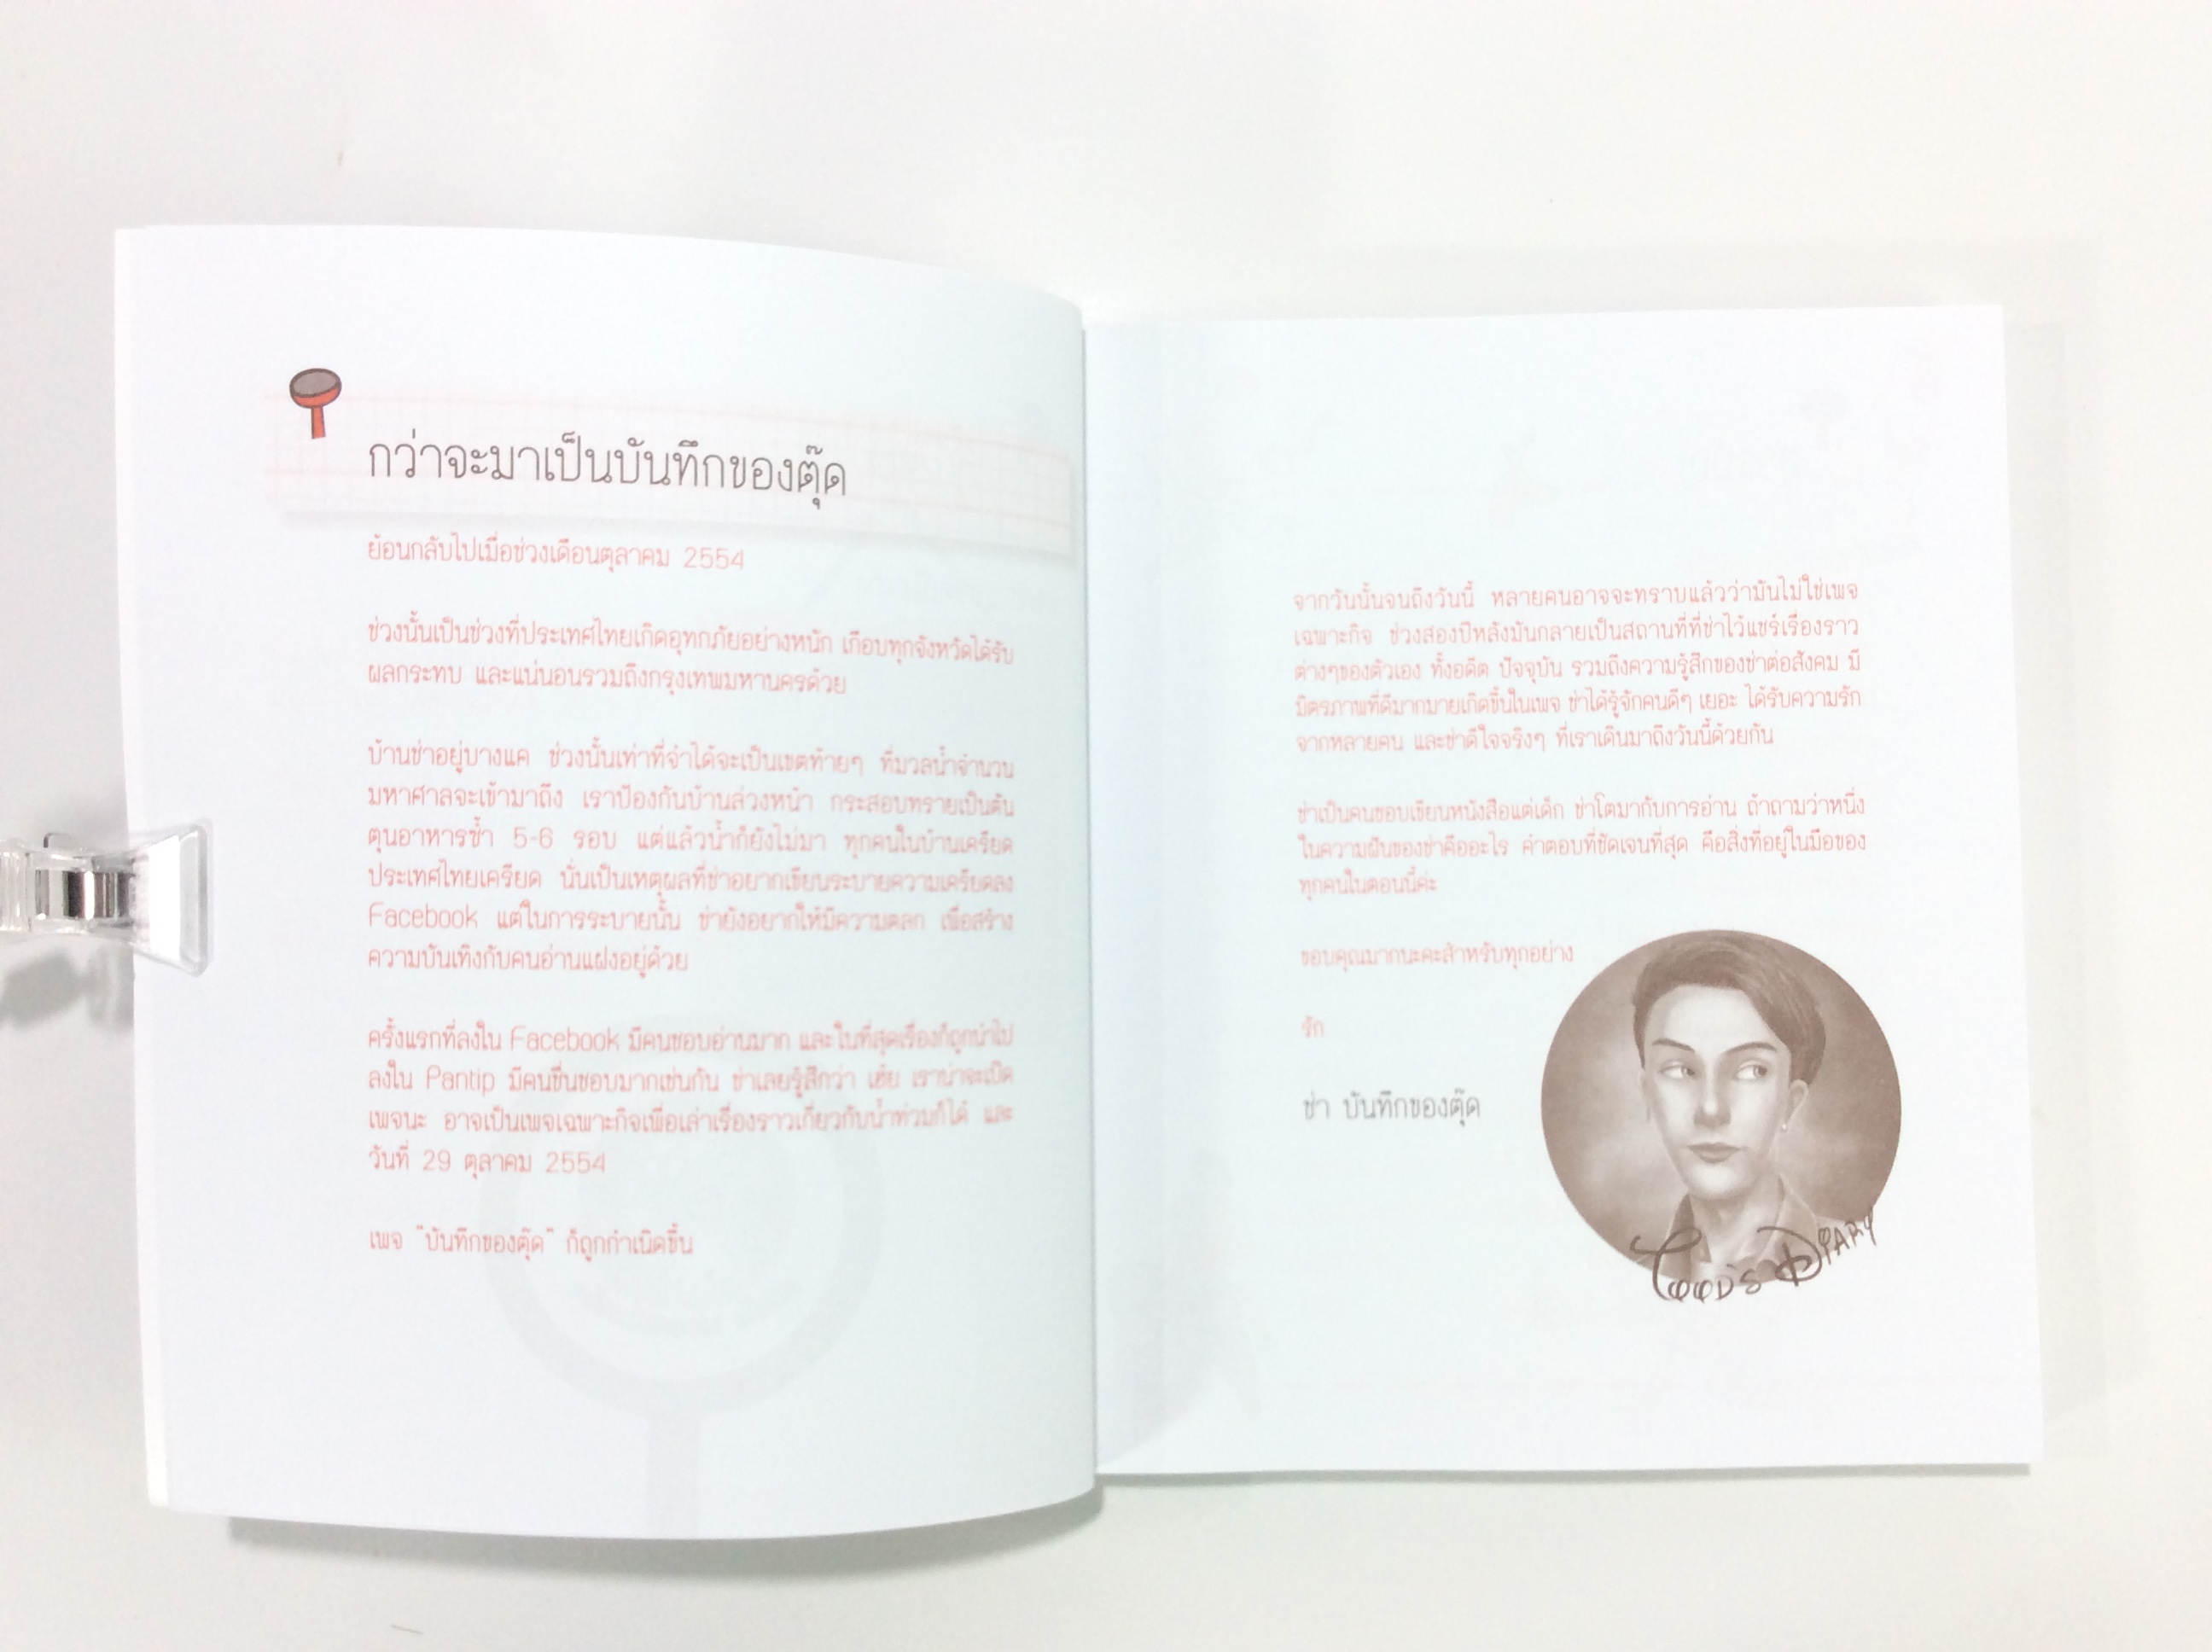 กว่าจะมาเป็นบันทึกของตุ๊ด
ย้อนกลับไปเมื่อช่วงเดือนตุลาคม 2554
ช่วงนั้นเป็นช่วงที่ประเทศไทยเกิดอุทกภัยอย่างหนัก เกือบทุกจังหวัดได้รับ
ผลกระทบ และแน่นอนรวมถึงกรุงเทพมหานครด้วย
บ้านช่าอยู่บางแค ช่วงนั้นเท่าที่จำได้จะเป็นเขตท้ายๆ ที่มวลน้ำจำนวน
มหาศาลจะเข้ามาถึง เราป้องกันบ้านล่วงหน้า กระสอบทรายเป็นตัน
ตุนอาหารซ้ำ 5-6 รอบ แต่แล้วน้ำก็ยังไม่มา ทุกคนในบ้านเครียด
ประเทศไทยเครียด นั่นเป็นเหตุผลที่ช่าอยากเขียนระบายความเครียดลง
Facebook แต่ในการระบายนั้น ช่ายังอยากให้มีความตลก เพื่อสร้าง
ความบันเทิงกับคนอ่านแฝงอยู่ด้วย
ครั้งแรกที่ลงใน Facebook มีคนชอบอ่านมาก และในที่สุดเรื่องก็ถูกนำไป
ลงใน Pantip มีคนชื่นชอบมากเช่นกัน ช่าเลยรู้สึกว่า เฮ้ย เราน่าจะเปิด
เพจนะ อาจเป็นเพจเฉพาะกิจเพื่อเล่าเรื่องราวเกี่ยวกับน้ำท่วมก็ได้ และ
วันที่ 29 ตุลาคม 2554
เพจ "บันทึกของตุ๊ด" ก็ถูกกำเนิดขึ้น
จากวันนั้นจนถึงวันนี้ หลายคนอาจจะทราบแล้วว่ามันไม่ใช่เพจ
เฉพาะกิจ ช่วงสองปีหลังมันกลายเป็นสถานที่ที่ช่าไว้แชร์เรื่องราว
ต่างๆของตัวเอง ทั้งอดีต ปัจจุบัน รวมถึงความรู้สึกของช่าต่อสังคม มี
มิตรภาพที่ดีมากมายเกิดขึ้นในเพจ ช่าได้รู้จักคนดีๆ เยอะ ได้รับความรัก
จากหลายคน และช่าดีใจจริงๆ ที่เราเดินมาถึงวันนี้ด้วยกัน
ช่าเป็นคนชอบเขียนหนังสือแต่เด็ก ช่าโตมากับการอ่าน ถ้าถามว่าหนึ่ง
ในความฝันของช่าคืออะไร คำตอบที่ชัดเจนที่สุด คือสิ่งที่อยู่ในมือของ
ทุกคนในตอนนี้ค่ะ
ขอบคุณมากนะคะสำหรับทุกอย่าง
รัก
ช่า บันทึกของตุ๊ด
TOOD'S DIARY